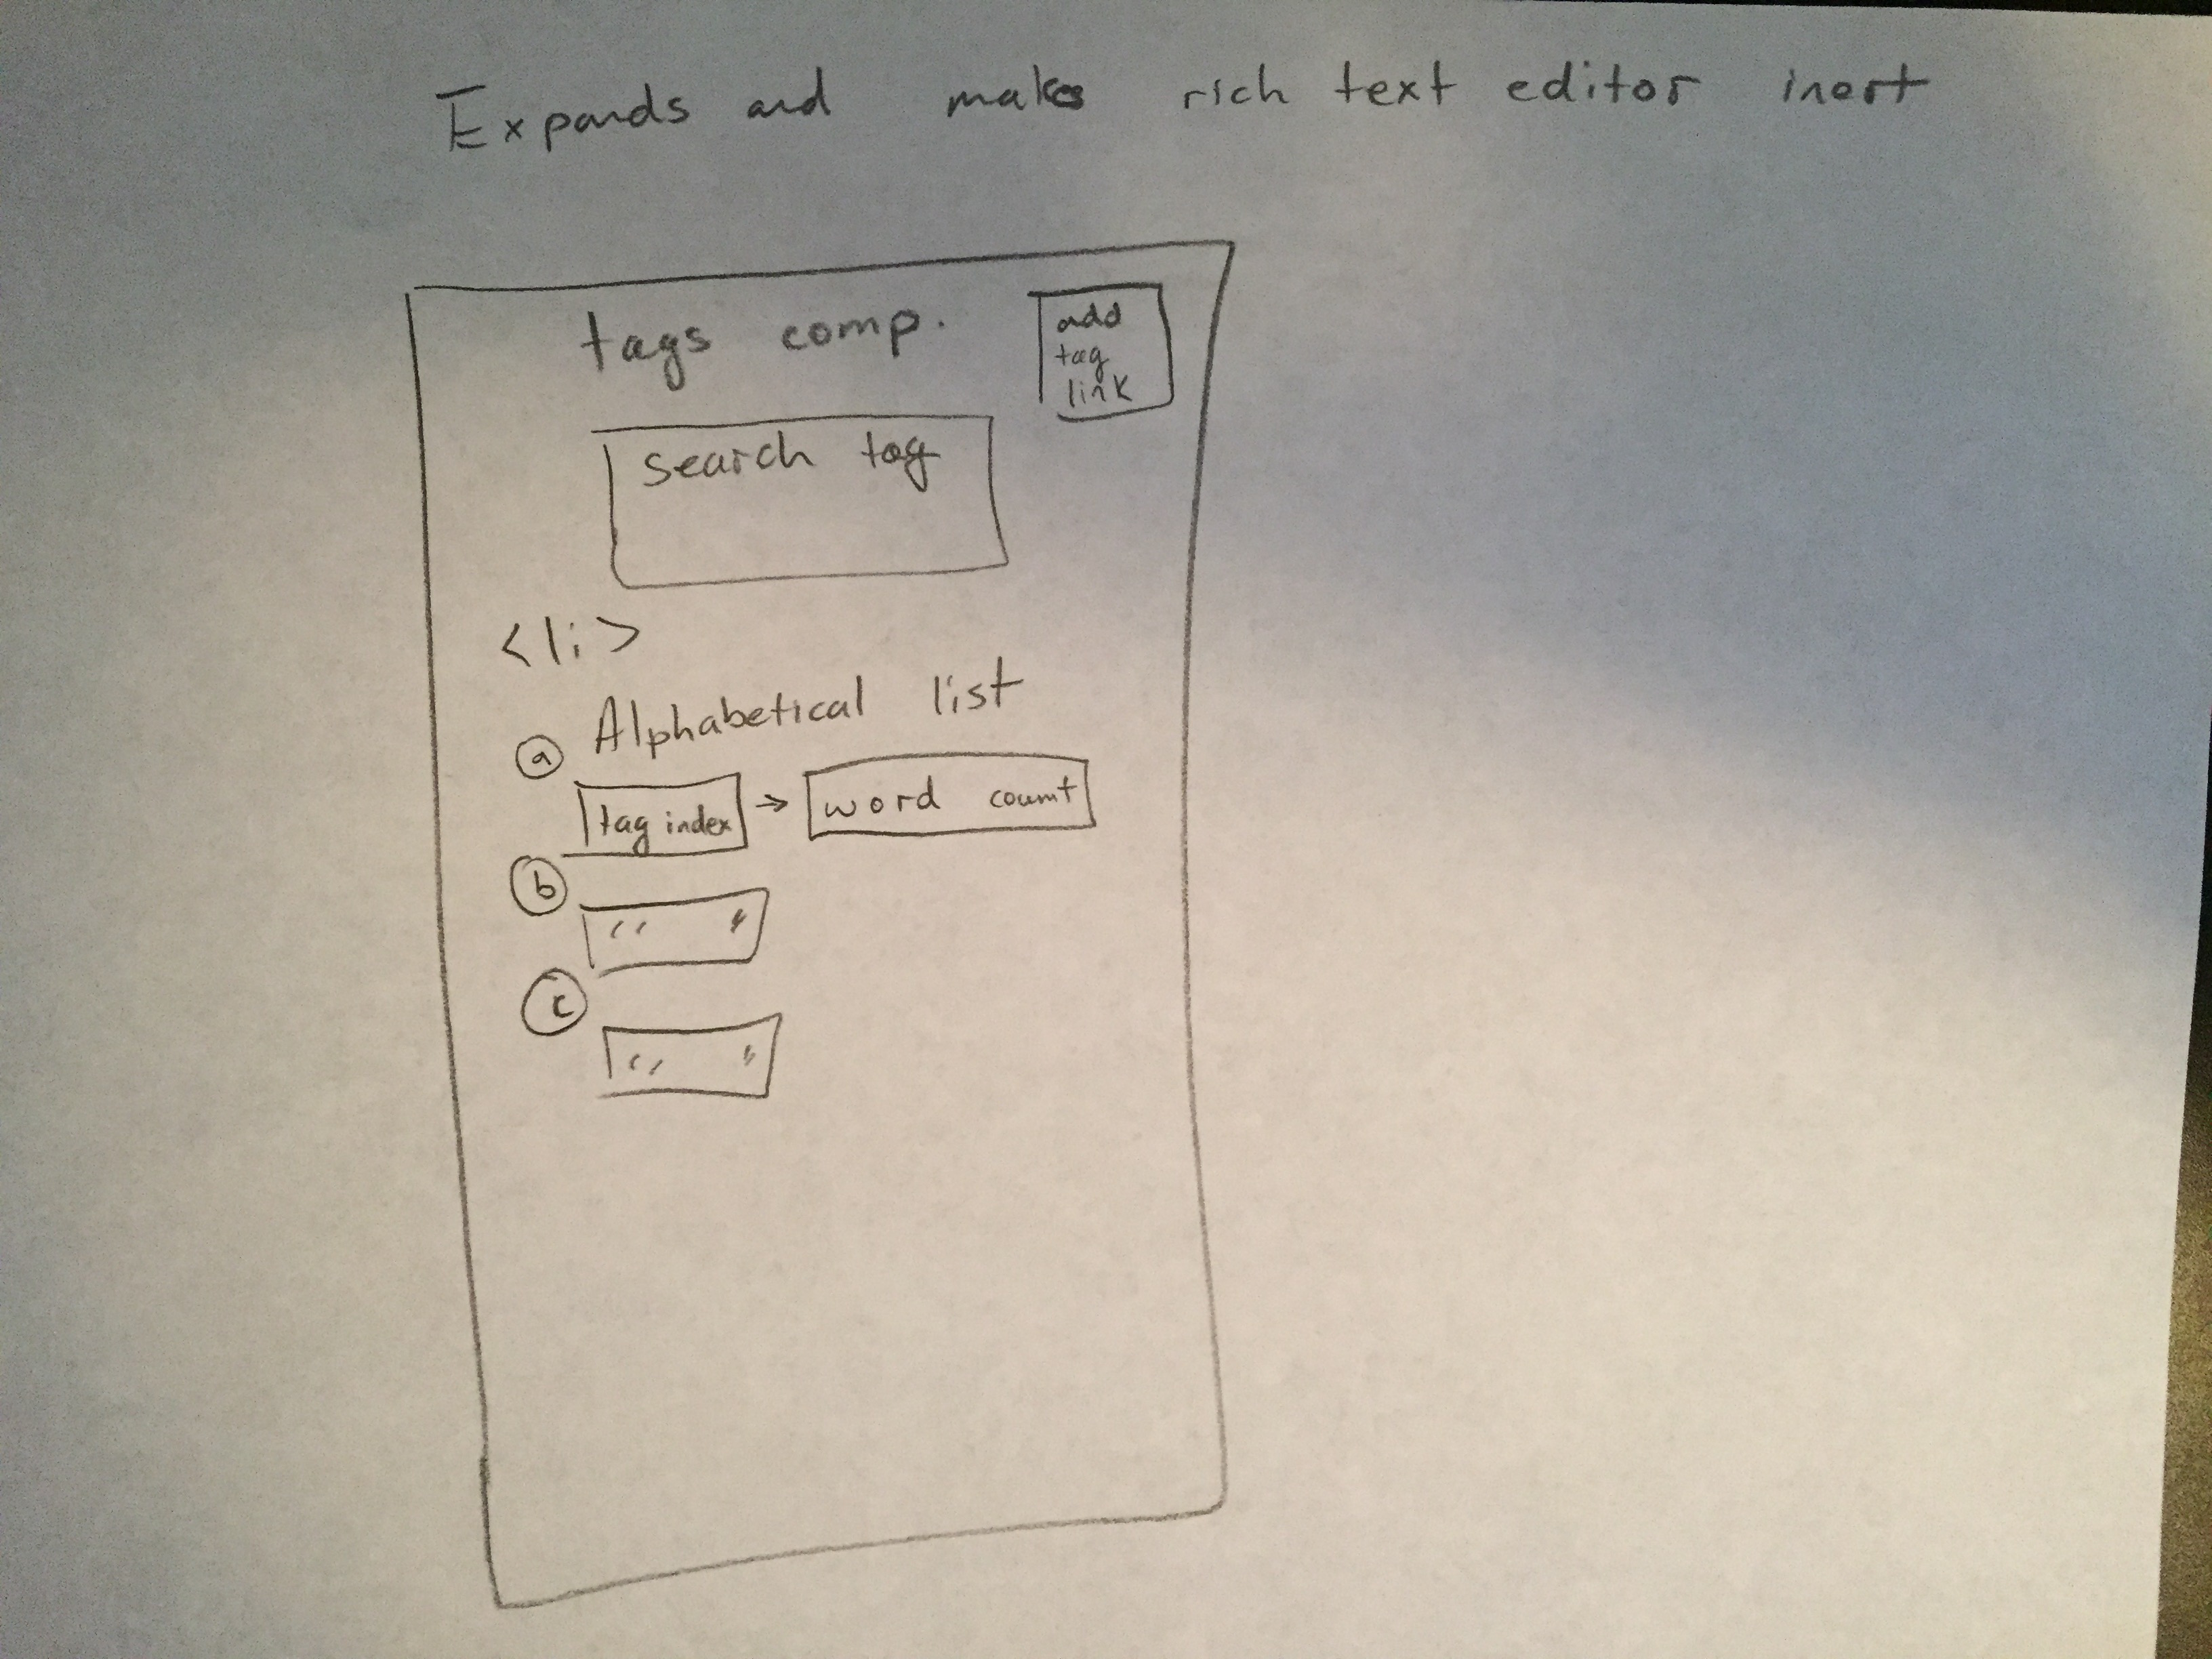 Expands and makes rich text editor inert
tags comp.
add
tag
link
search tag
<li>
Alphabetical list
a
tag index → word count
b
" "
c
" "